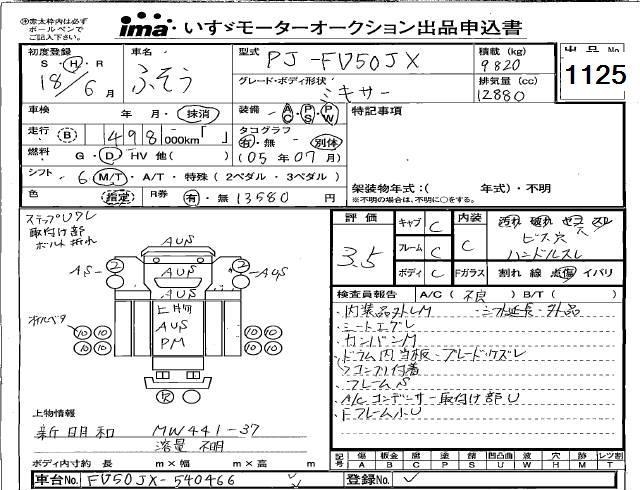 ※太枠内は必ず
ボールペンで
ご記入下さい。
ima いすゞモーターオークション出品申込書
初度登録
S・H・R
18/6月
車名
ふそう
型式
PJ-FV50JX
積載 (kg)
9820
出品No.
1125
グレード・ボディ形状
ミキサー
排気量 (cc)
12880
車検 年 月・抹消
装備 AC PS PW
特記事項
走行 B 498 000km
タコグラフ
有・無 別体
(05年07月)
燃料 G・D・HV 他( )
シフト 6 M/T・A/T・特殊 (2ペダル・3ペダル)
架装物年式:( 年式)・不明
※架装物年式不明の場合は、不明に○をする。
色 指定 R券 有・無 13580 円
ステップUクレ
取付け部
ボルト折れ
AUS
2
2
AS
AUS
上物
AUS
PM
ホイルペタ
10 10 10 10
10 10 10 10
欠
上物情報
新明和 MW441-37
容量 不明
ボディ内寸約 長 m×幅 m×高 m
評価
3.5
キャブ C
フレーム C
ボディ C
内装
C
汚れ 破れ コゲ スレ
ビス穴
ハンドルスレ
Fガラス 割れ 線 点傷 イバリ
検査員報告 A/C (不良) B/T ( )
・内装品外しM ・シフト延長・外品
・シートエグレ
・カンバンM
・ドラム内当板・ブレードクズレ
コンクリ付着
・フレームS
・A/Cコンデンサー取付け部U
・Fフレーム小U
記号 傷 板金 腐 塗 錆 凹凸曲 波 穴 跡 レツ割
A B C P S U W H M T
車台No. FV50JX-540466
登録No.